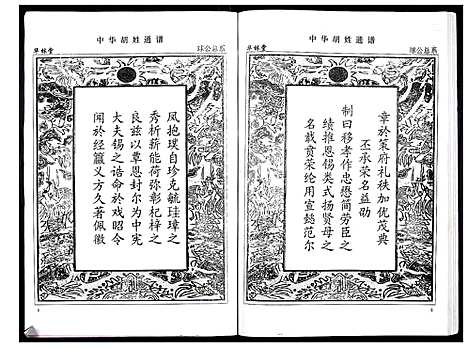 中华胡姓通谱
球公总系
章於策府礼秩加优茂典
丕承荣名益劭
制曰移孝作忠懋简劳臣之
绩推恩锡类式扬贤母之
名载贲荣纶用宣懿范尔
中华胡姓通谱
凤抱璞自珍克毓珪璋之
秀析薪能荷弥彰杞梓之
良兹以覃恩封尔为中宪
大夫锡之诰命於戏昭令
闻於经籝义方久著佩徽